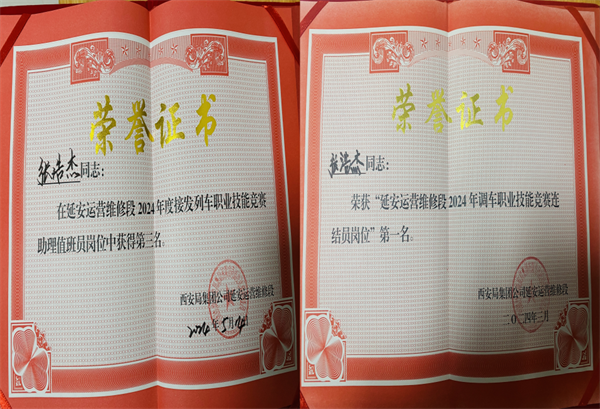 荣誉证书
张浩杰同志：
在延安运营维修段2024年度接发列车职业技能竞赛
助理值班员岗位中获得第三名。
西安局集团公司延安运营维修段
2024年5月14日
荣誉证书
张浩杰同志：
荣获“延安运营维修段2024年调车职业技能竞赛连
结员岗位”第一名。
西安局集团公司延安运营维修段
二〇二四年三月